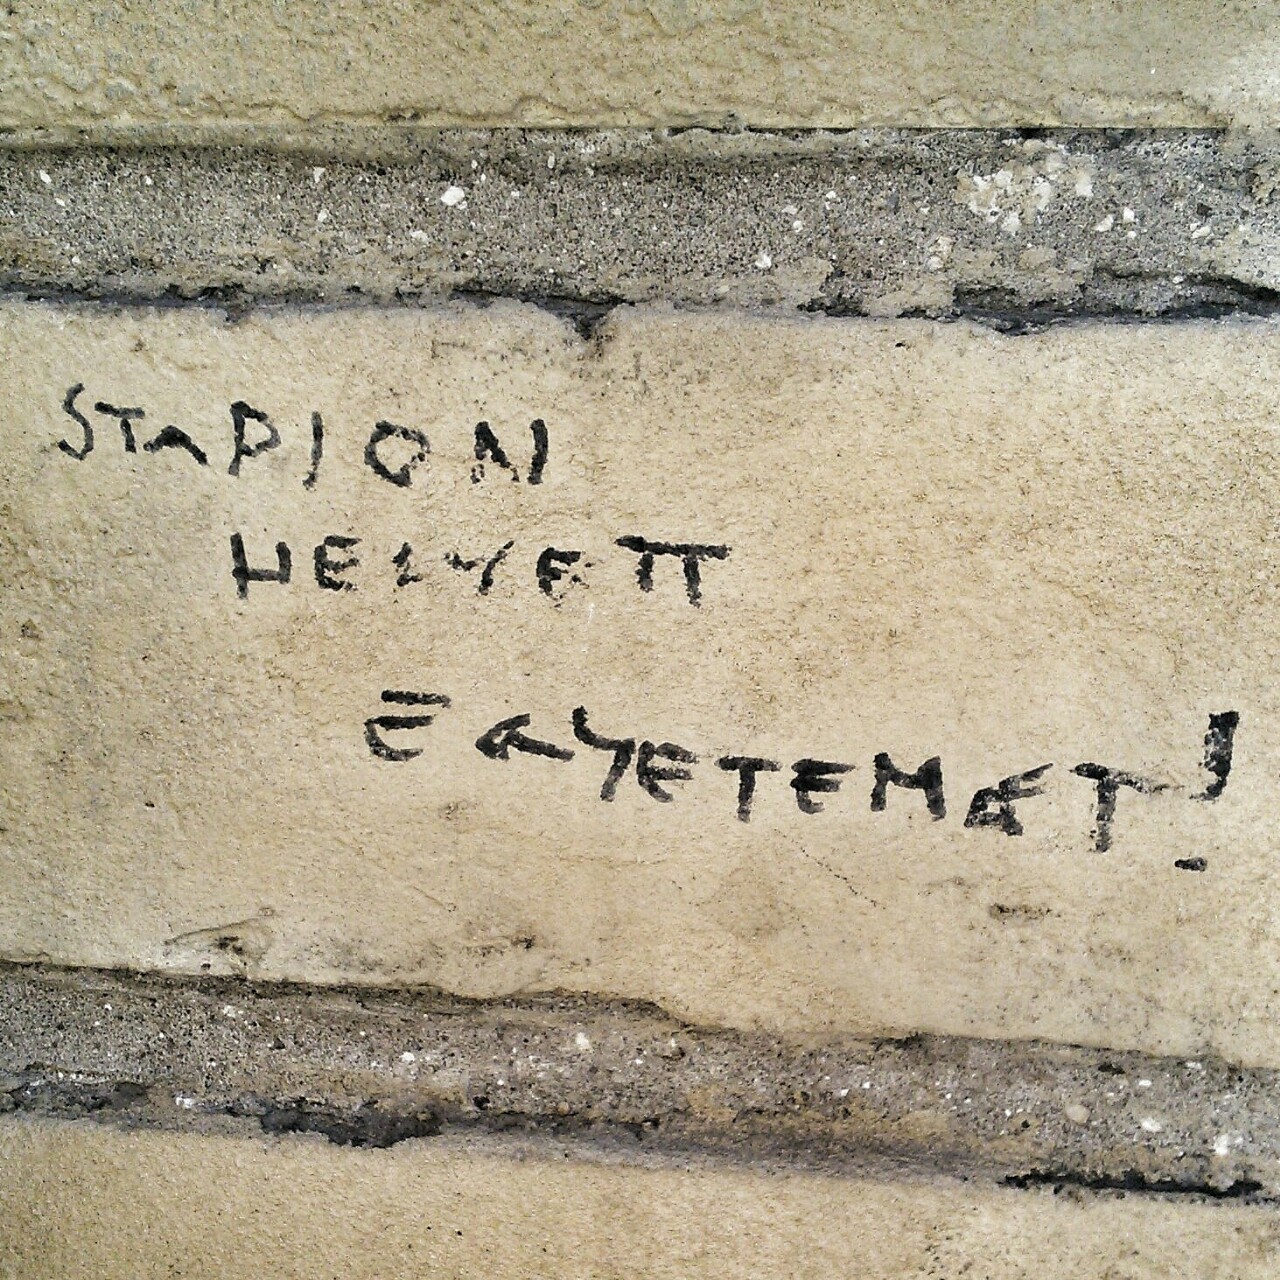 STADION
HELYETT
EGYETEMET!